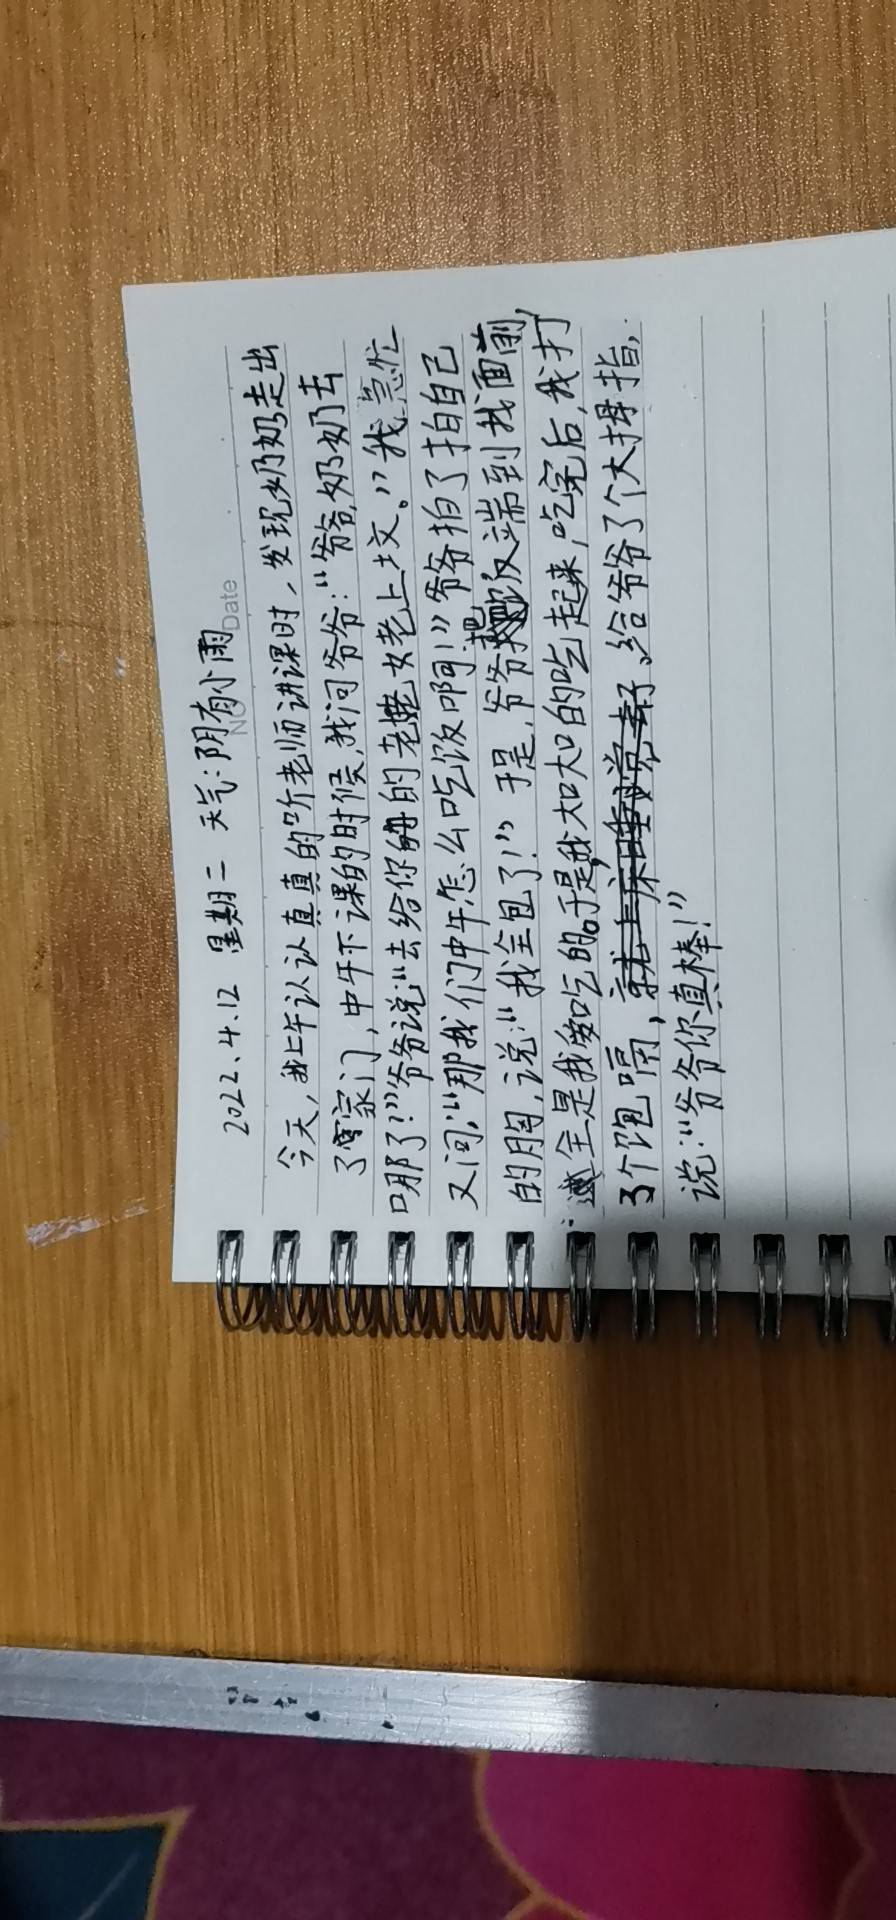 2022.4.12 星期二 天气:阴有小雨
No
Date
今天,我上午认认真真的听老师讲课时,发现奶奶走出
了家门,中午下课的时候,我问爷爷:“爷爷,奶奶去
哪了?”爷爷说:“去给你的老姥老上坟。”我急忙
又问:“那我们中午怎么吃饭啊!”爷爷拍了拍自己
的胸,说:“我全包了!”于是,爷爷把饭端到我面前,
全是我爱吃的。于是,我大口大口的吃起来,吃完后,我打
了个饱嗝,给爷爷了个大拇指,
说:“爷爷你真棒!”